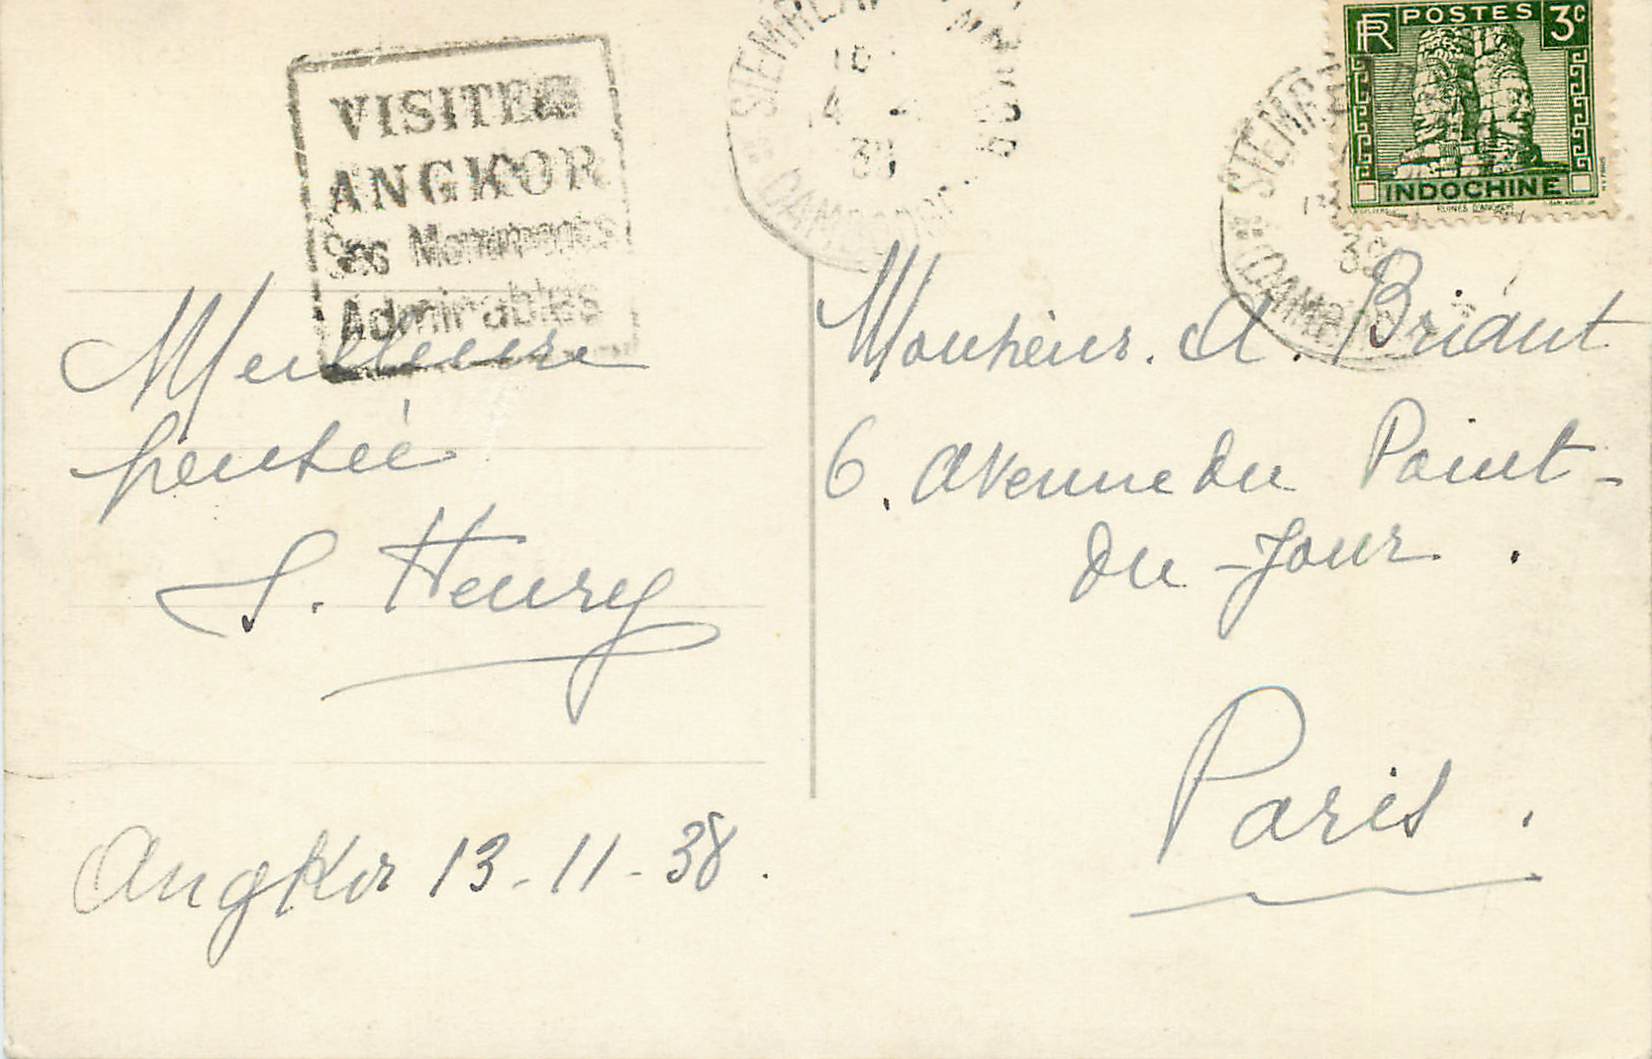 VISITEZ
ANGKOR
Ses Monuments
Admirables
SIEMREAP ANGKOR
CAMBODGE
RF POSTES 3c
INDOCHINE
RUINES D'ANGKOR
SIEMREAP
CAMBODGE
Meilleure
pensée
S. Henry
Angkor 13-11-38.
Monsieur. A. Briant
6, Avenue du Point-
du-Jour.
Paris.